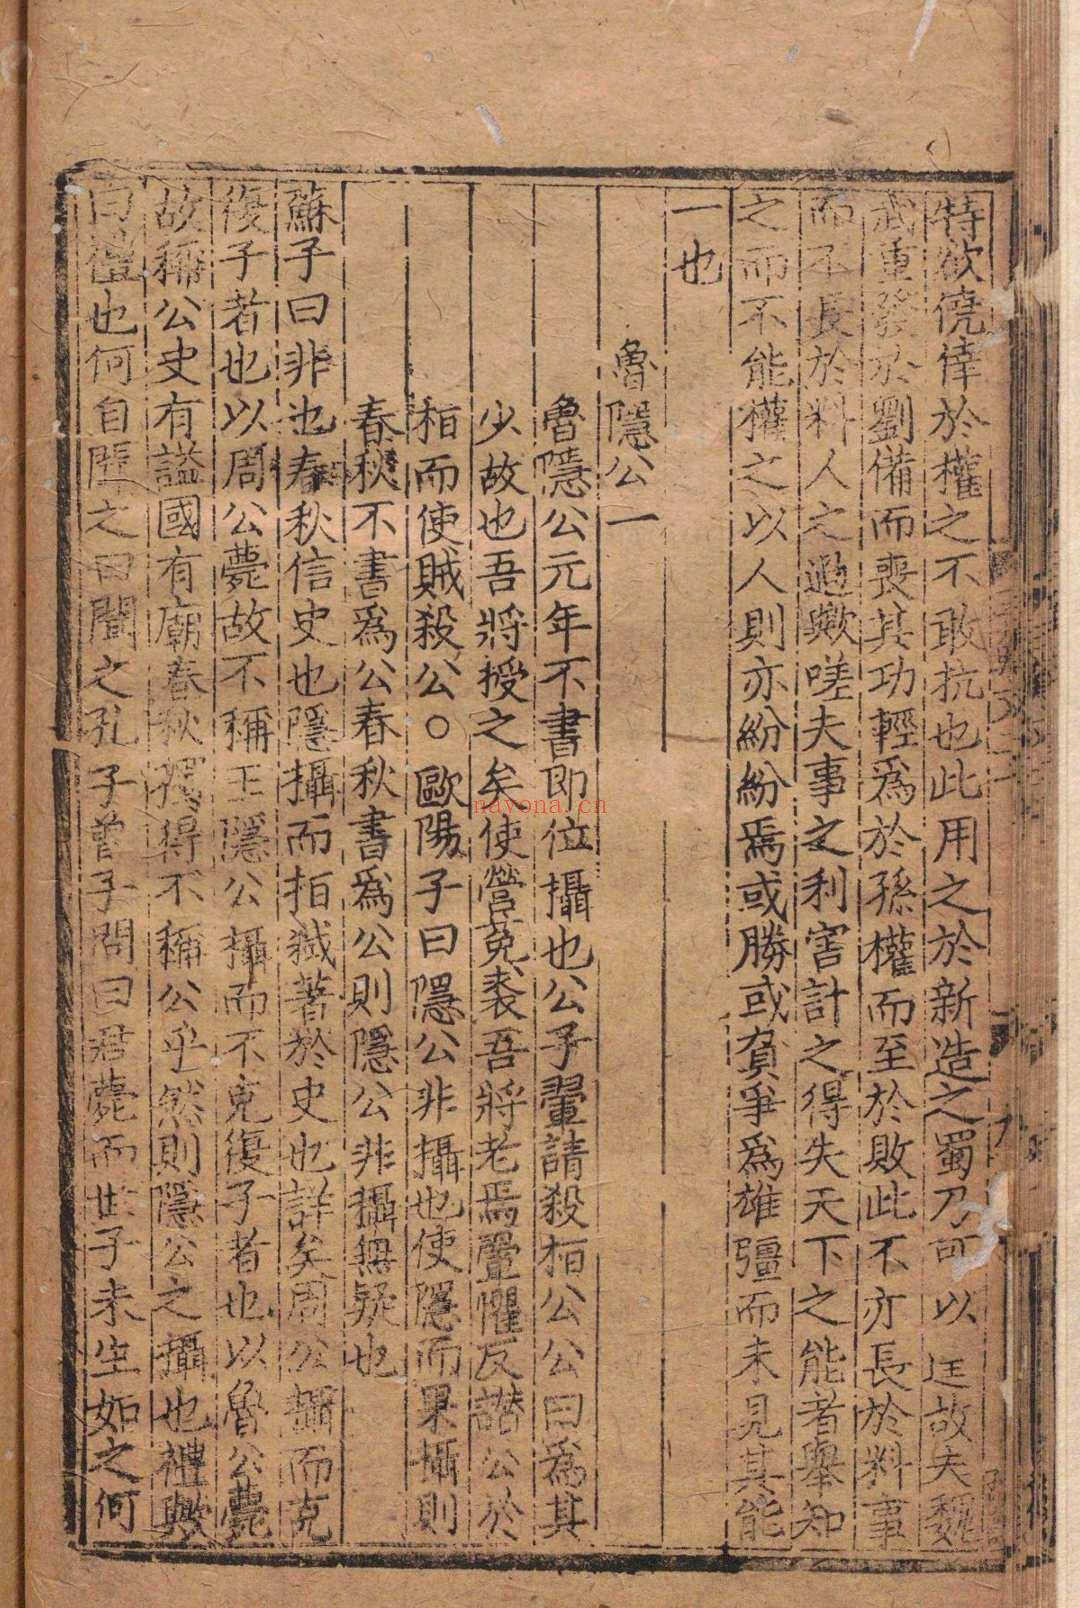 特欲僥倖於權之不敢抗也此用之於新造之蜀乃可以逞故夫魏
武重發於劉備而喪其功輕爲於孫權而至於敗此不亦長於料事
而不長於料人之過歟嗟夫事之利害計之得失天下之能者舉知
之而不能權之以人則亦紛紛焉或勝或負爭爲雄彊而未見其能
一也
魯隱公一
魯隱公元年不書即位攝也公子翬請殺栢公公曰爲其
少故也吾將授之矣使營菟裘吾將老焉翬懼反譖公於
栢而使賊殺公○歐陽子曰隱公非攝也使隱而果攝則
春秋不書爲公春秋書爲公則隱公非攝無疑也
蘇子曰非也春秋信史也隱攝而栢弑著於史也詳矣周公攝而克
復子者也以周公薨故不稱王隱公攝而不克復子者也以魯公薨
故稱公史有謚國有廟春秋獨得不稱公乎然則隱公之攝也禮歟
曰禮也何自聞之曰聞之孔子曾子問曰君薨而世子未生如之何
nayona.cn